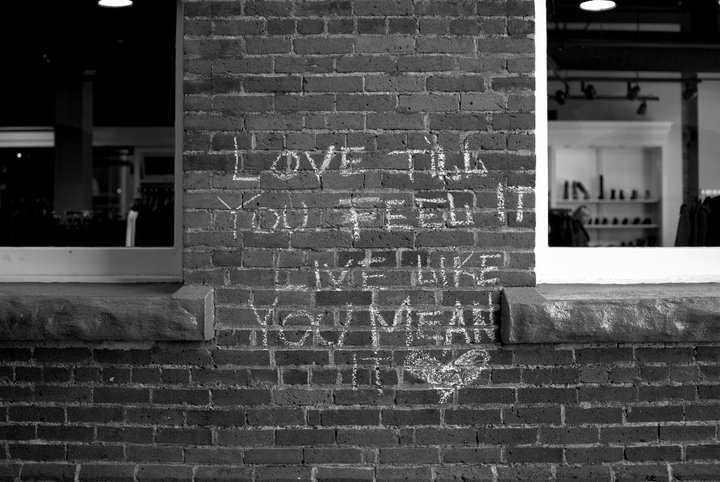 LOVE TILL
YOU FEEL IT
LIVE LIKE
YOU MEAN
IT